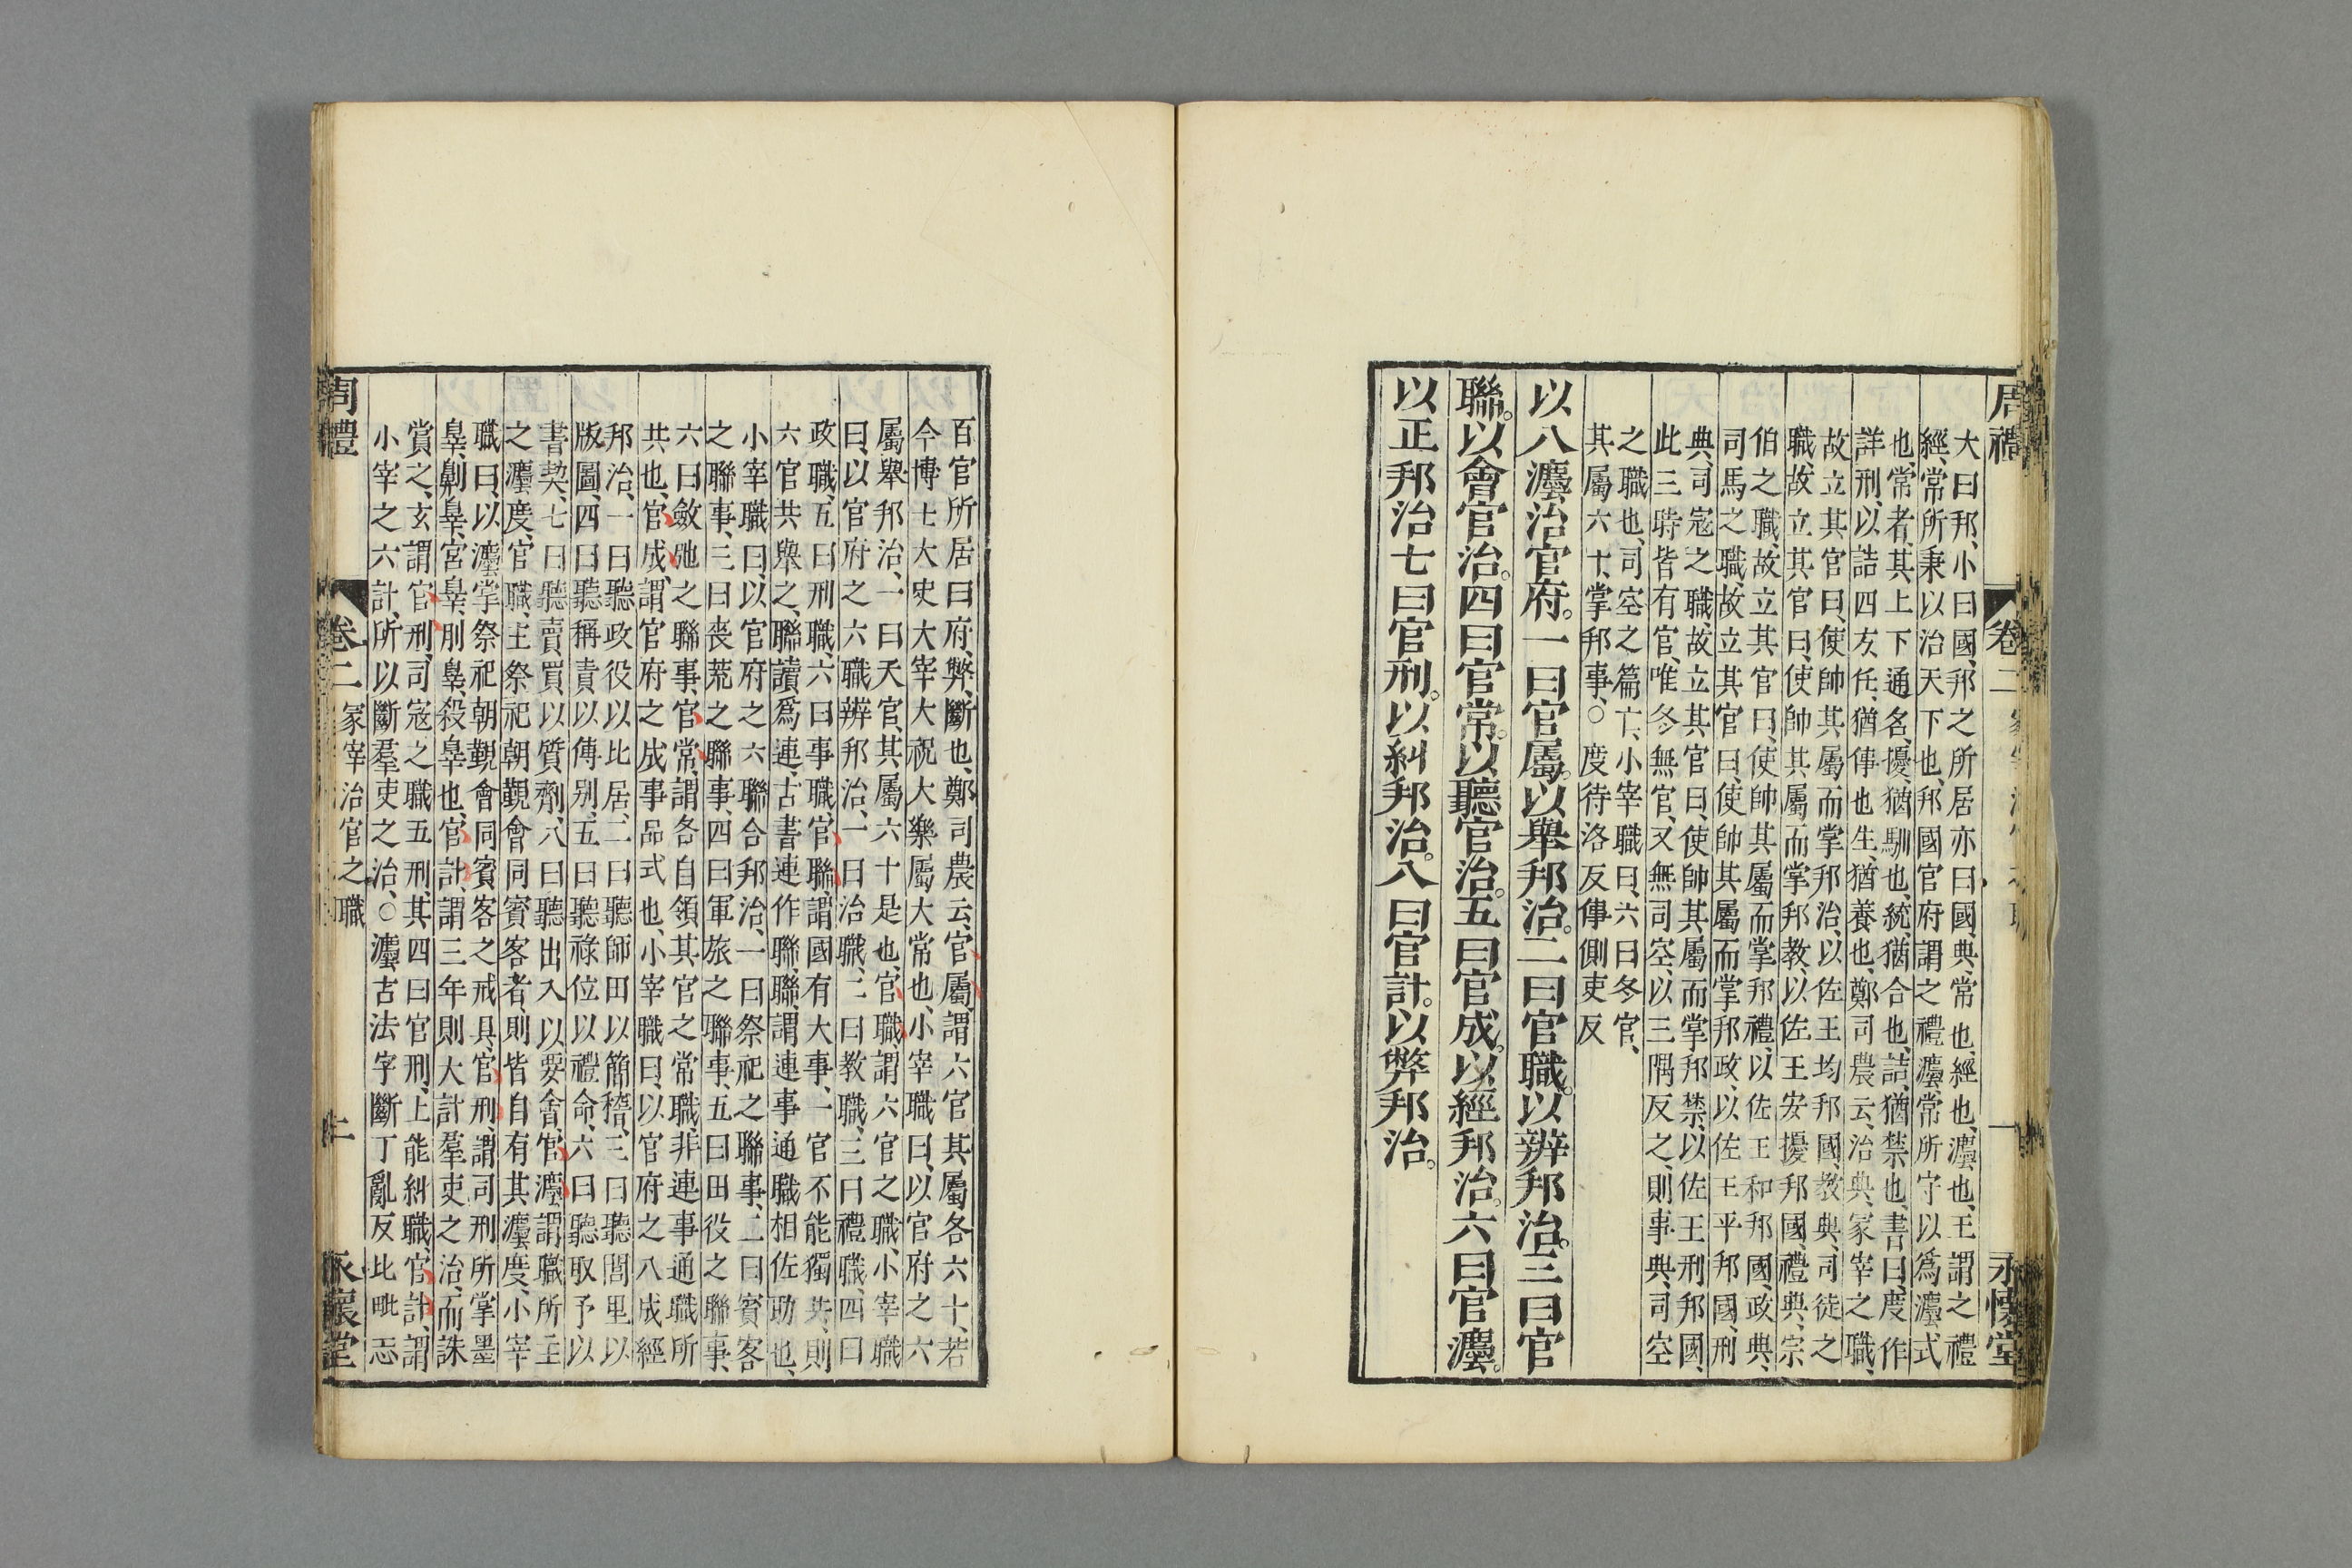 周禮 卷二 一 永懷堂
大曰邦、小曰國、邦之所居亦曰國、典、常也、經也、灋也、王謂之禮
經、常所秉以治天下也、邦國官府謂之禮灋、常所守以爲灋式
也、常者、其上下通名、擾、猶馴也、統、猶合也、詰、猶禁也、書曰、度作
詳刑、以詰四方、任、猶倳也、生、猶養也、鄭司農云、治典、冢宰之職、
故立其官曰、使帥其屬而掌邦治、以佐王均邦國、教典、司徒之
職、故立其官曰、使帥其屬而掌邦教、以佐王安擾邦國、禮典、宗
伯之職、故立其官曰、使帥其屬而掌邦禮、以佐王和邦國、政典、
司馬之職、故立其官曰、使帥其屬而掌邦政、以佐王平邦國、刑
典、司寇之職、故立其官曰、使帥其屬而掌邦禁、以佐王刑邦國、
此三時皆有官、唯冬無官、又無司空、以三隅反之、則事典、司空
之職也、司空之篇亡、小宰職曰、六曰冬官、
其屬六十、掌邦事、○度待洛反倳側吏反
以八灋治官府。一曰官屬。以舉邦治。二曰官職。以辨邦治。三曰官
聯。以會官治。四曰官常。以聽官治。五曰官成。以經邦治。六曰官灋。
以正邦治七曰官刑。以糾邦治。八曰官計。以弊邦治。
百官所居曰府、弊、斷也、鄭司農云、官屬、謂六官其屬各六十、若
今博士大史大宰大祝大樂屬大常也、小宰職曰、以官府之六
屬舉邦治、一曰天官、其屬六十是也、官職、謂六官之職、小宰職
曰、以官府之六職辨邦治、一曰治職、二曰教職、三曰禮職、四曰
政職、五曰刑職、六曰事職、官聯、謂國有大事、一官不能獨共、則
六官共舉之、聯讀爲連、古書連作聯、聯謂連事通職相佐助也、
小宰職曰、以官府之六聯合邦治、一曰祭祀之聯事、二曰賓客
之聯事、三曰喪荒之聯事、四曰軍旅之聯事、五曰田役之聯事、
六曰斂弛之聯事、官常、謂各自領其官之常職、非連事通職所
共也、官成、謂官府之成事品式也、小宰職曰、以官府之八成經
邦治、一曰聽政役以比居、二曰聽師田以簡稽、三曰聽閭里以
版圖、四曰聽稱責以傅别、五曰聽祿位以禮命、六曰聽取予以
書契、七曰聽賣買以質劑、八曰聽出入以要會、官灋、謂職所主
之灋度、官職、主祭祀朝覲會同賓客者、則皆自有其灋度、小宰
職曰、以灋掌祭祀朝覲會同賓客之戒具、官刑、謂司刑所掌墨
辠、劓辠、宮辠、刖辠、殺辠也、官計、謂三年則大計羣吏之治、而誅
賞之、玄謂官刑、司寇之職五刑、其四曰官刑、上能糾職、官計、謂
小宰之六計、所以斷羣吏之治、○灋古法字斷丁亂反比毗志
周禮 卷二 冢宰治官之職 永懷堂